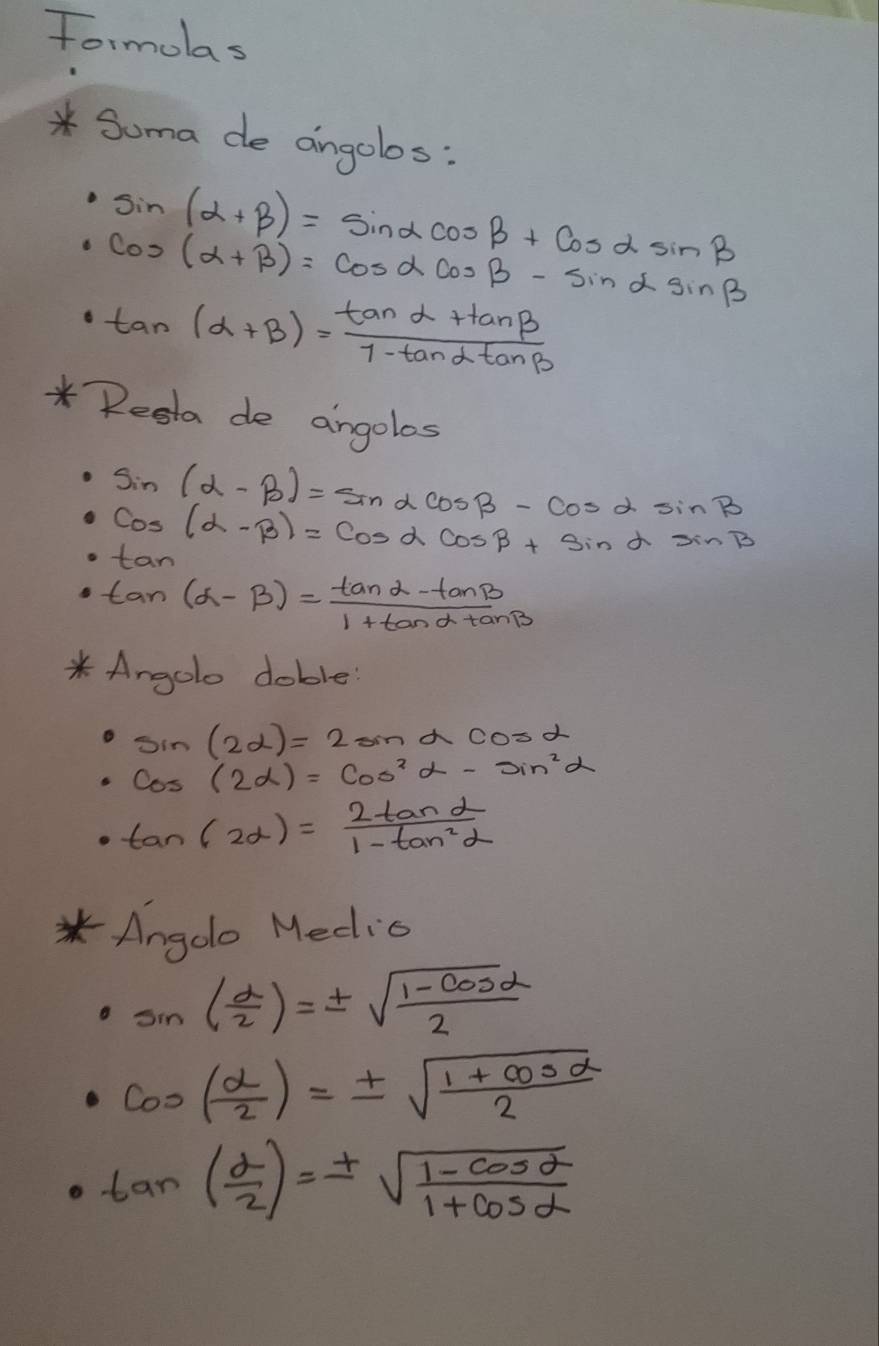 Formulas
* Suma de ángulos:
• sin (α+β) = sinα cos β + Cos α sin β
• Cos (α+β) = Cos α Cos β - Sin α Sin β
• tan (α+β) = (tan α + tan β)/(1 - tan α tan β)
* Resta de ángulos
• Sin (α - β) = sin α cos β - cos α sin β
• Cos (α - β) = Cos α Cos β + Sin α sin β
• tan
• tan (α - β) = (tan α - tan β)/(1 + tan α tan β)
* Angulo doble:
• sin (2α) = 2 sin α cos α
• Cos (2α) = Cos² α - sin² α
• tan (2α) = (2 tan α)/(1 - tan² α)
* Ángulo Medio
• sin (α/2) = ± √((1 - Cos α)/2)
• Cos (α/2) = ± √((1 + cos α)/2)
• tan (α/2) = ± √((1 - cos α)/(1 + cos α))